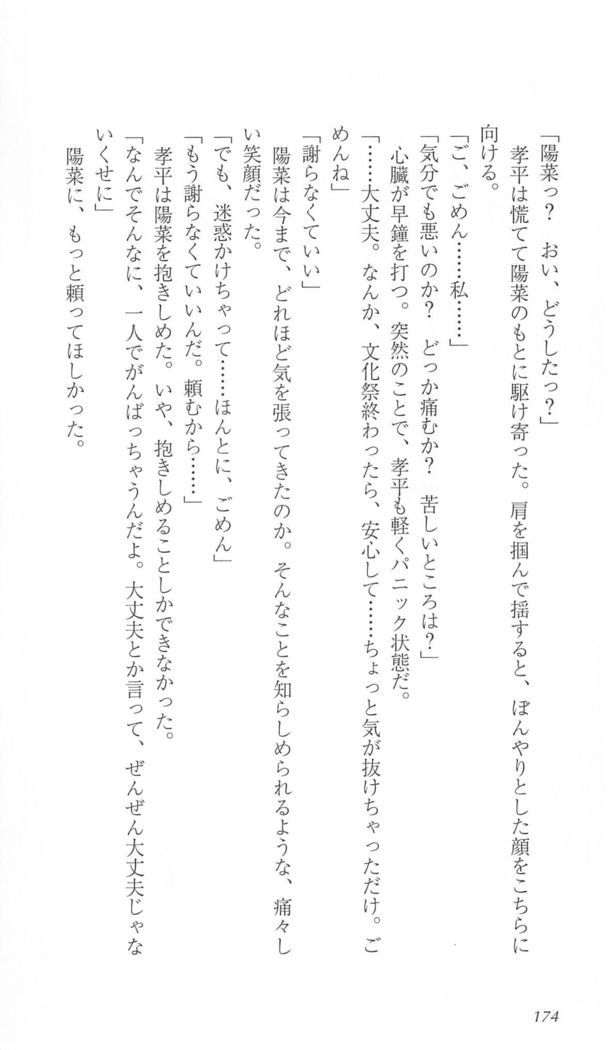 「陽菜っ？　おい、どうしたっ？」
　孝平は慌てて陽菜のもとに駆け寄った。肩を掴んで揺すると、ぼんやりとした顔をこちらに
向ける。
「ご、ごめん……私……」
「気分でも悪いのか？　どっか痛むか？　苦しいところは？」
　心臓が早鐘を打つ。突然のことで、孝平も軽くパニック状態だ。
「……大丈夫。なんか、文化祭終わったら、安心して……ちょっと気が抜けちゃっただけ。ご
めんね」
「謝らなくていい」
　陽菜は今まで、どれほど気を張ってきたのか。そんなことを知らしめられるような、痛々し
い笑顔だった。
「でも、迷惑かけちゃって……ほんとに、ごめん」
「もう謝らなくていいんだ。頼むから……」
　孝平は陽菜を抱きしめた。いや、抱きしめることしかできなかった。
「なんでそんなに、一人でがんばっちゃうんだよ。大丈夫とか言って、ぜんぜん大丈夫じゃな
いくせに」
　陽菜に、もっと頼ってほしかった。
174